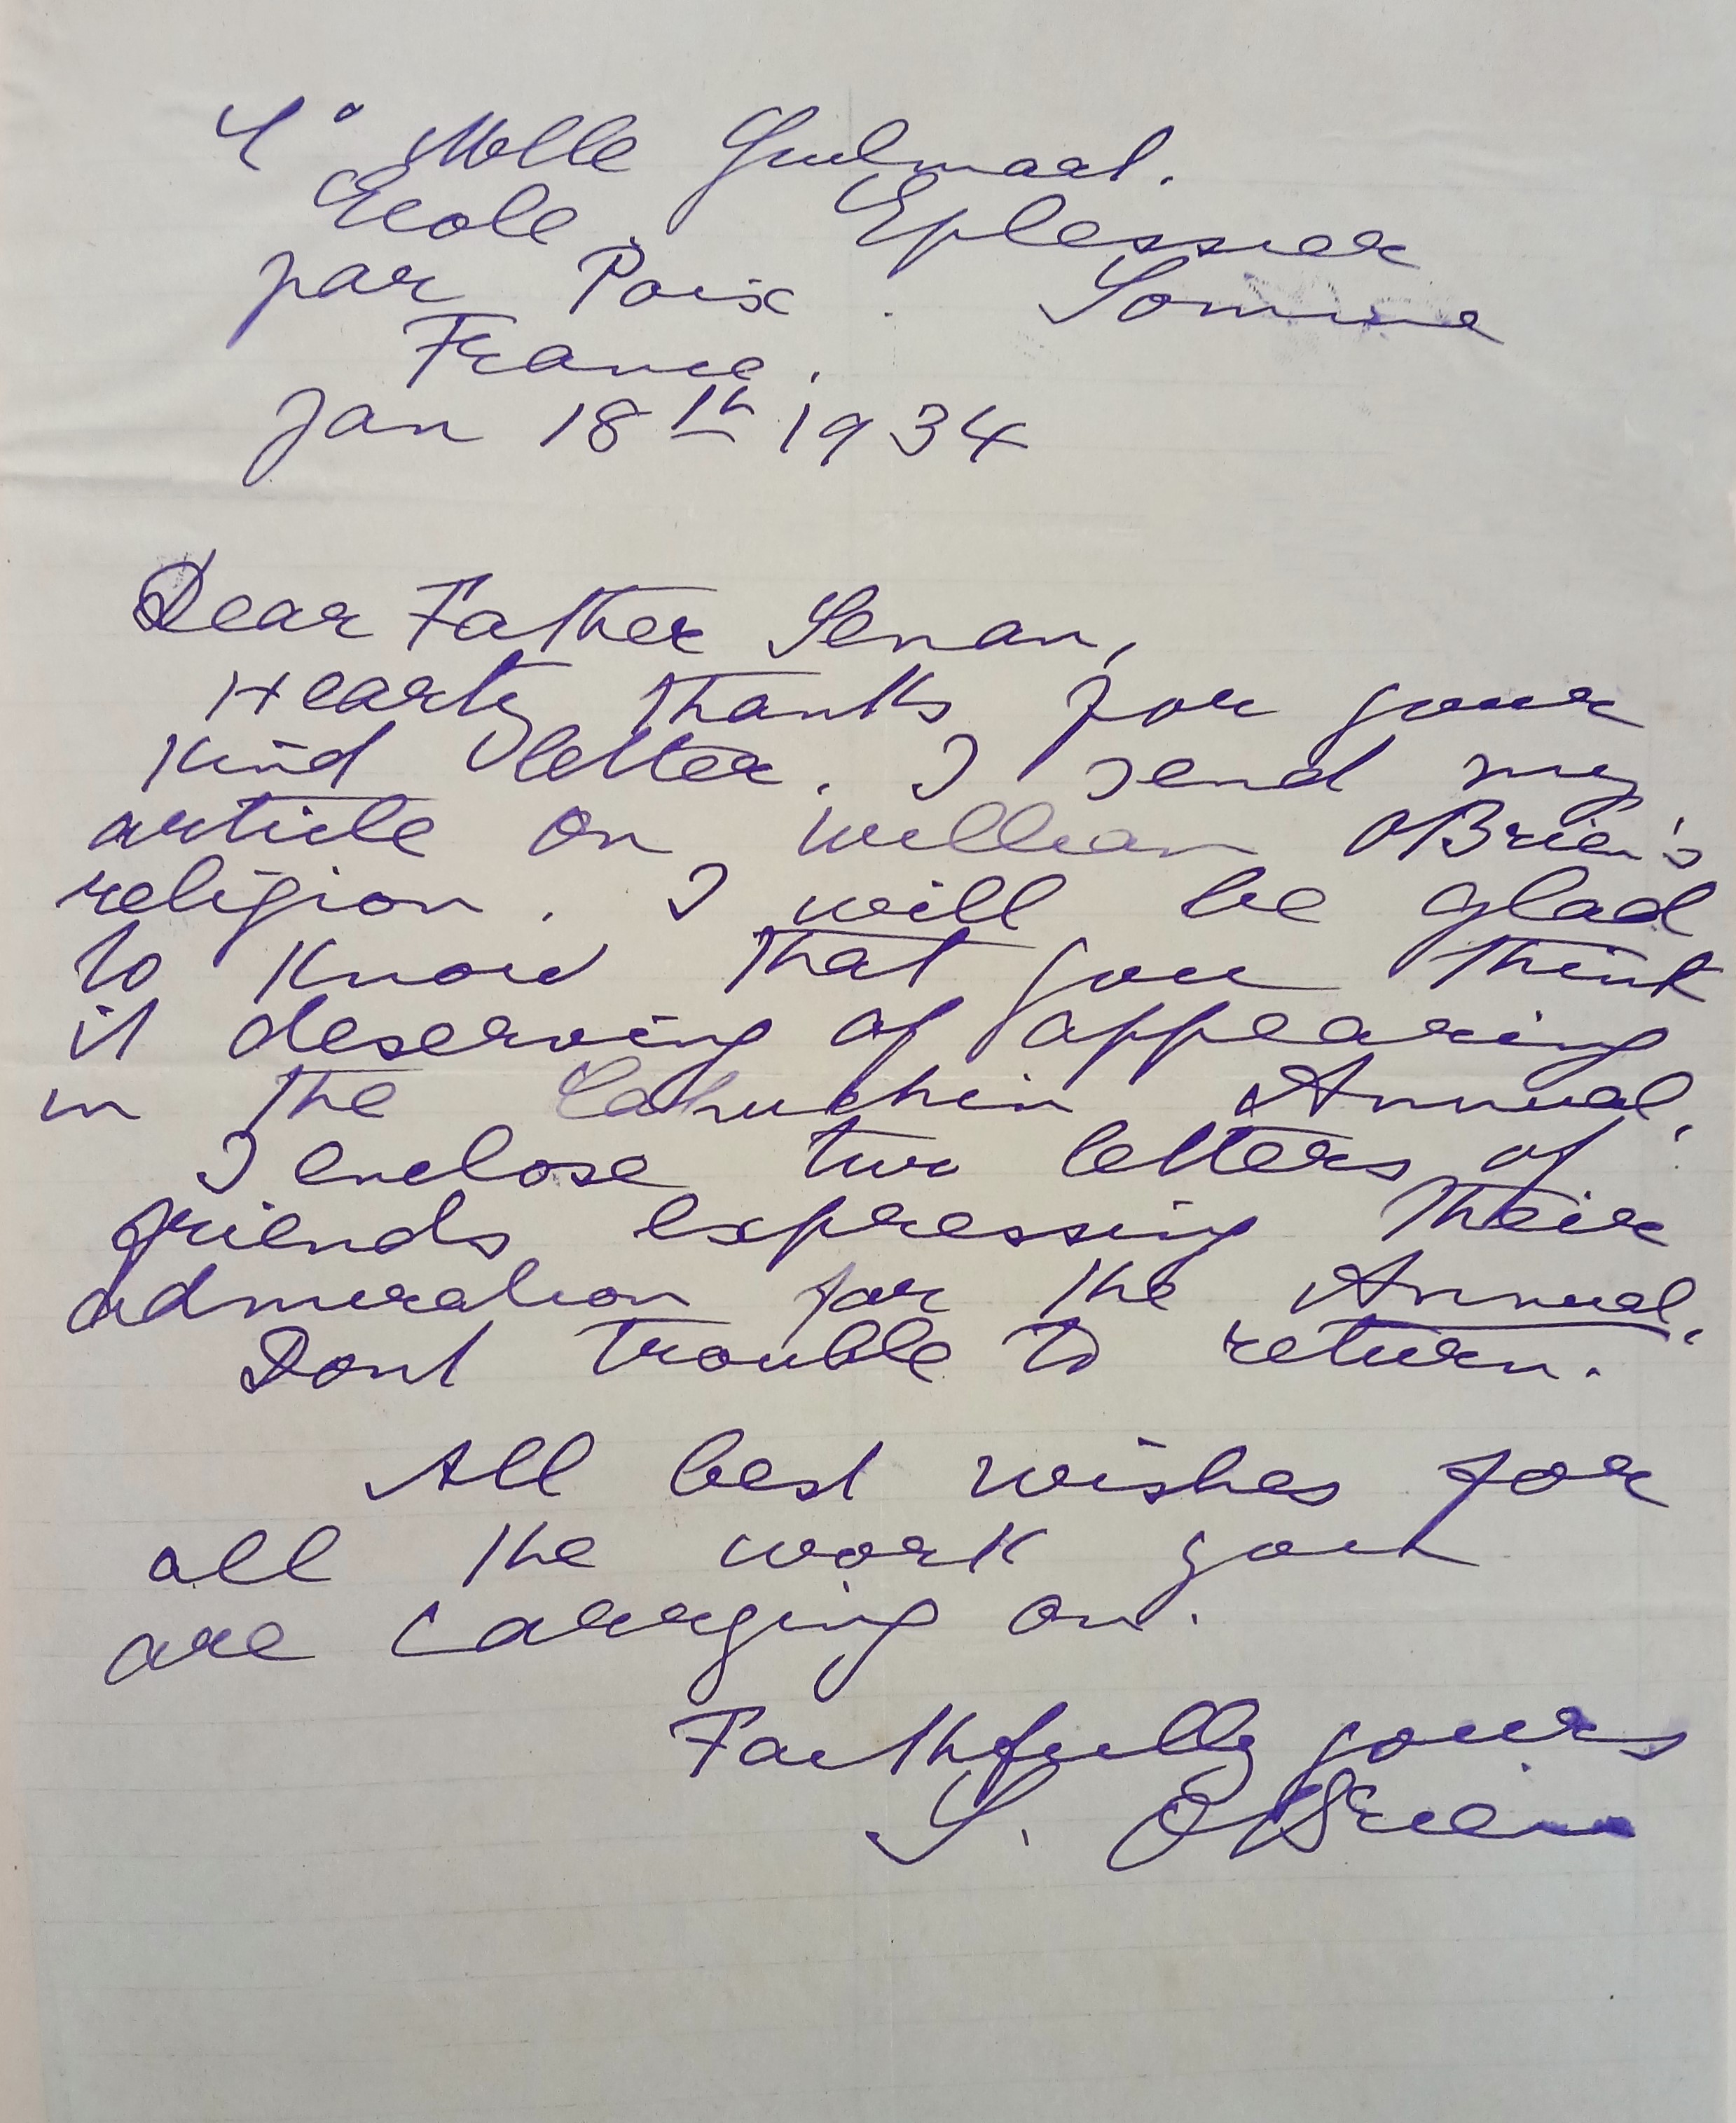 c/o Melle Guilmaat.
Ecole. Eplessier
par Poix. Somme
France.
Jan 18th 1934
Dear Father Senan,
Hearty thanks for your
kind letter. I send my
article on William OBrien's
religion. I will be glad
to know that you think
it deserving of appearing
in the Capuchin Annual.
I enclose two letters of
friends expressing their
admiration for the Annual.
Dont trouble to return.
All best wishes for
all the work you
are carrying on.
Faithfully yours
S. OBrien